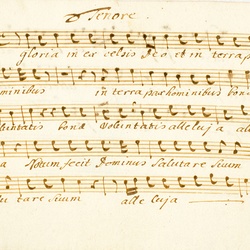 Tenore
gloria in ex celsis Deo et in terra p
ominibus in terra pax hominibus bon
oluntatis bonæ voluntatis alleluja a
a Notum fecit Dominus Salutare suum
lu tare suum alle luja